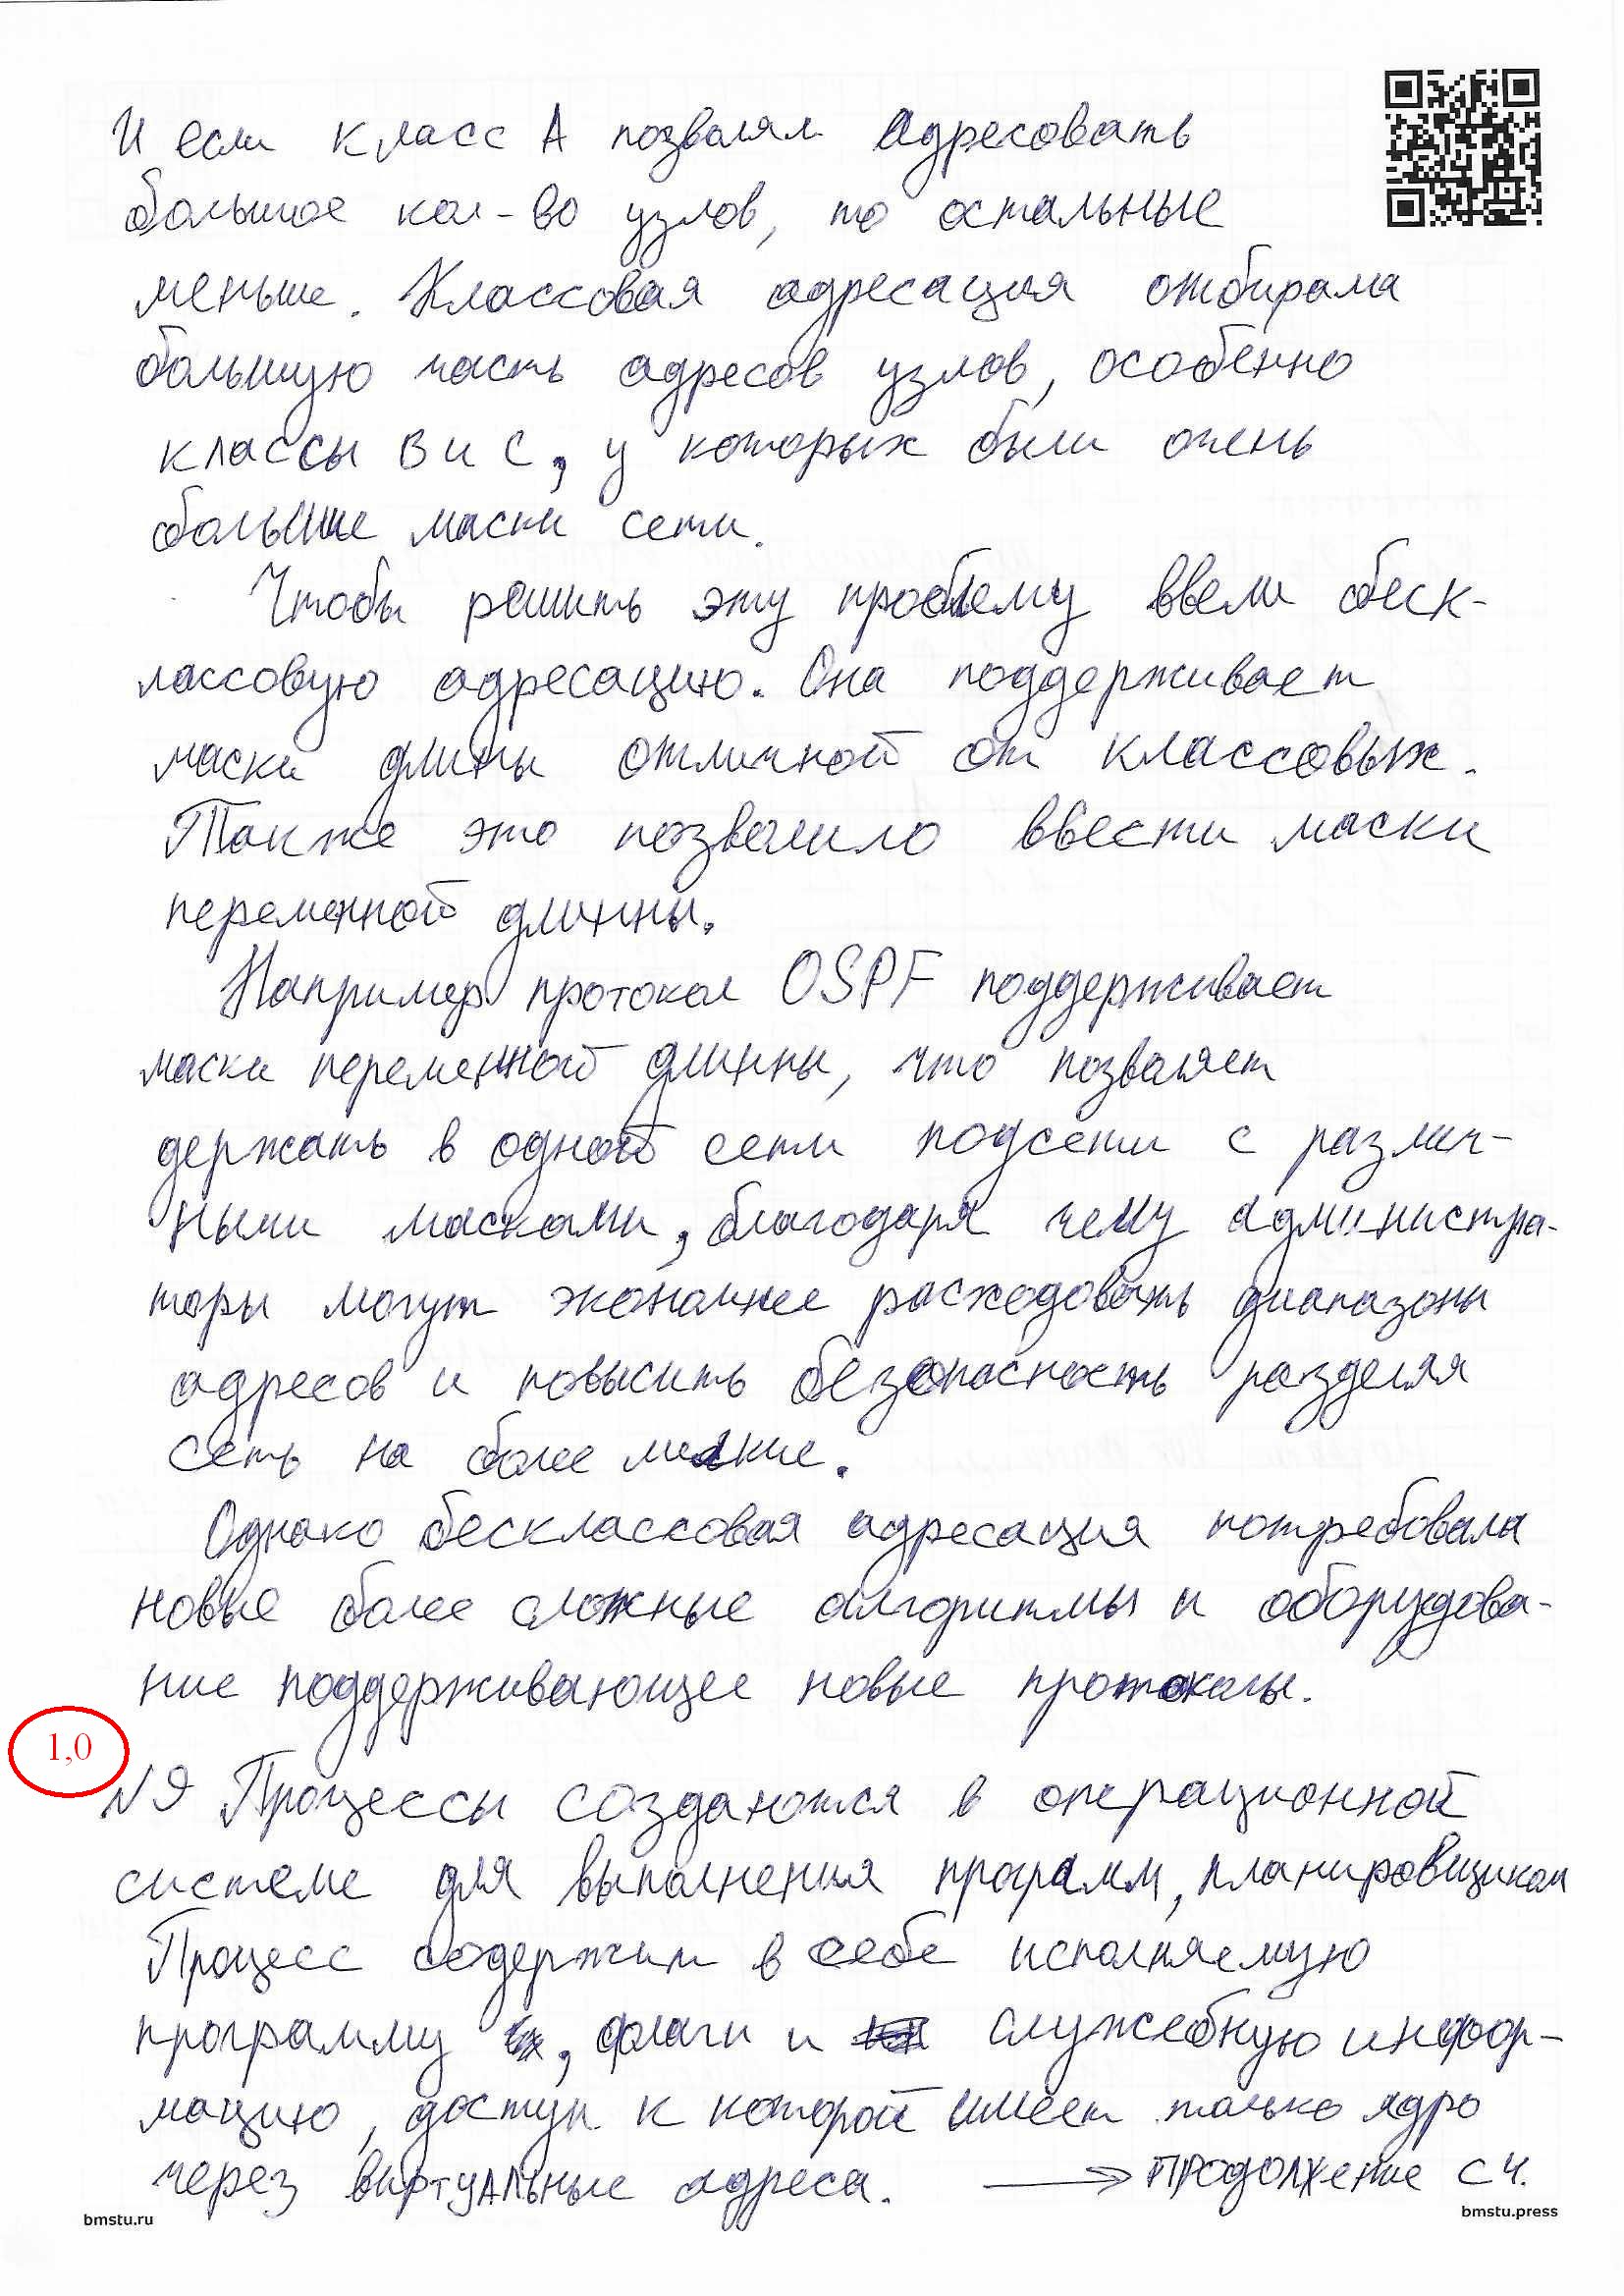 И если класс А позволял адресовать
большое кол-во узлов, то остальные
меньше. Классовая адресация отбирала
большую часть адресов узлов, особенно
классы В и С, у которых были очень
большие маски сети.
Чтобы решить эту проблему ввели беск-
лассовую адресацию. Она поддерживает
маски длины отличной от классовых.
Также это позволило ввести маски
переменной длинны.
Например протокол OSPF поддерживает
маски переменной длинны, что позволяет
держать в одной сети подсети с различ-
ными масками, благодаря чему администра-
торы могут экономнее расходовать диапазоны
адресов и повысить безопасность разделяя
сеть на более мелкие.
Однако бесклассовая адресация потребовала
новые более сложные алгоритмы и оборудова-
ние поддерживающее новые протоколы.
1,0
№9 Процессы создаются в операционной
системе для выполнения программ, планировщиком
Процесс содержит в себе исполняемую
программу , флаги и служебную инфор-
мацию, доступ к которой имеет только ядро
через виртуальные адреса. → продолжение с 4.
bmstu.ru
bmstu.press